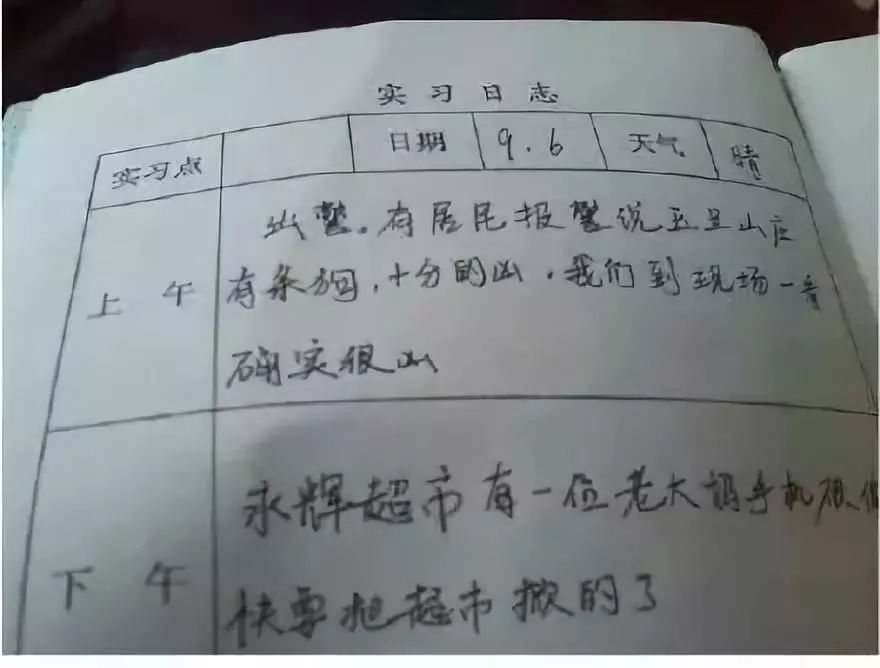 实习日志
实习点 日期 9.6 天气 晴
上午
出警。有居民报警说玉呈山庄
有条狗,十分的凶,我们到现场一看
确实很凶
下午
永辉超市有一位老大妈手机
快要把超市掀的了